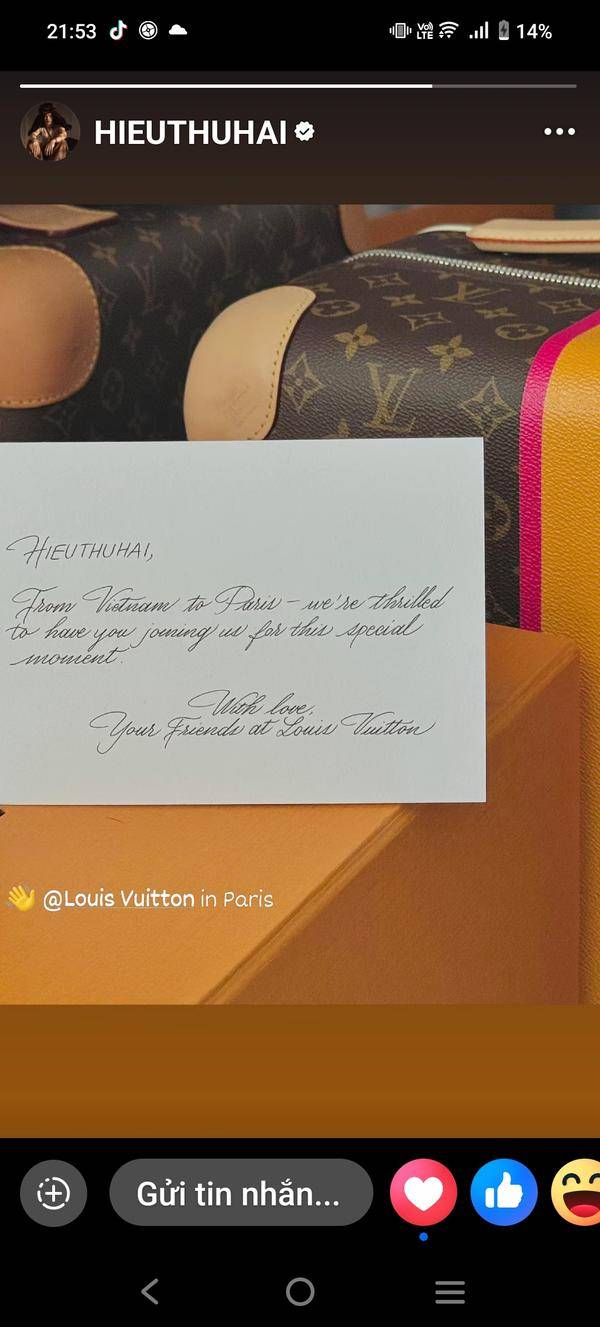 21:53
Vo)
LTE
14%
HIEUTHUHAI
LV
HIEUTHUHAI,
From Vietnam to Paris – we're thrilled
to have you joining us for this special
moment.
With love,
Your Friends at Louis Vuitton
👋 @Louis Vuitton in Paris
Gửi tin nhắn...